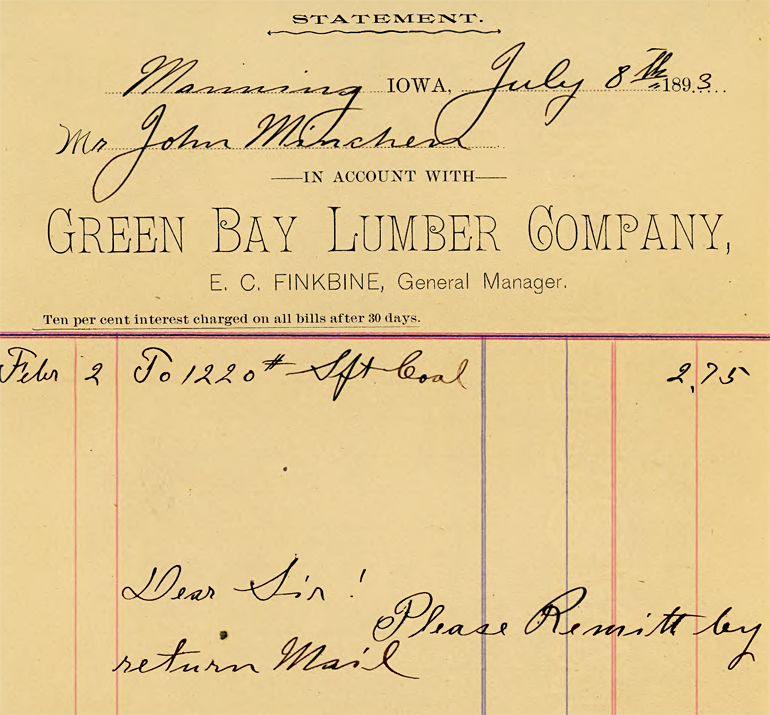 STATEMENT.
Manning IOWA, July 8th 1893
Mr John Minchen
IN ACCOUNT WITH
GREEN BAY LUMBER COMPANY,
E. C. FINKBINE, General Manager.
Ten per cent interest charged on all bills after 30 days.
Febr 2 To 1220# Sft Coal 2,75
Dear Sir!
Please Remitt by
return Mail